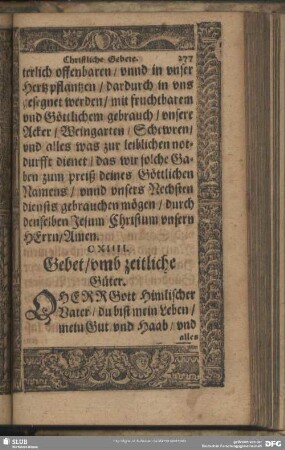 Christliche Gebete. 277
terlich offenbaren / vnnd in vnser
Hertz pflantzen / dardurch in vns
gesegnet werden / mit fruchtbarem
vnd Göttlichem gebrauch / vnsere
Acker / Weingarten / Schewren /
vnd alles was zur leiblichen not-
durfft diener / das wir solche Ga-
ben zum preiß deines Göttlichen
Namens / vnnd vnsers Nechsten
diensts gebrauchen mögen / durch
denselben Jesum Christum vnsern
HErrn / Amen.
CXIIII.
Gebet / vmb zeitliche
Güter.
O HERR Gott Himlischer
Vater / du bist mein Leben /
mein Gut vnd Haab / vnd
alles
SLUB
DFG